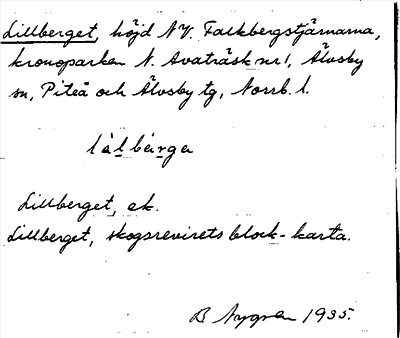 Lillberget, höjd NV. Falkbergstjärnarna,
kronoparken N. Avaträsk nr 1, Älvsby
sn, Piteå och Älvsby tg, Norrb. l.
Lillberget, ek.
Lillberget, skogsrevirets block-karta.
B Nygren 1935.